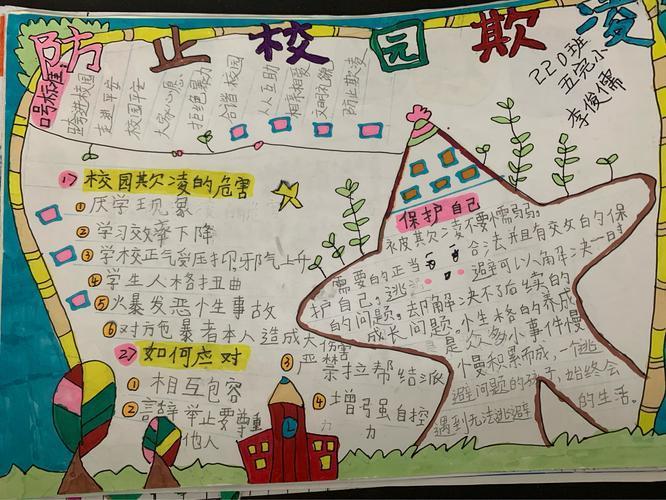 防止校园欺凌
220班
五完小
李俊儒
口号标准：
跨进校园
走进平安
校园平安
大家心愿
拒绝暴力
合谐校园
人人互助
相亲相爱
文明礼貌
防止欺凌
1）校园欺凌的危害
①厌学现象
②学习效率下降
③学校正气受压抑邪气上升
④学生人格扭曲
⑤火暴发恶性事故
⑥对方色暴者本人造成大伤害
2）如何应对
①相互包容
②言辞举止要尊重
他人
③严禁拉帮结派
④增强自控
力
保护自己
被皮欺凌不要懦弱。
需要的正当合法并且有交攵白勺保
护自己。逃避可以角解决一时
的问题。却解决不了后续的
成长问题。个生格的养成
是众多小事件慢
慢积累而成，一个逃
避问题的孩子，始终会
遇到无法逃避的生活。